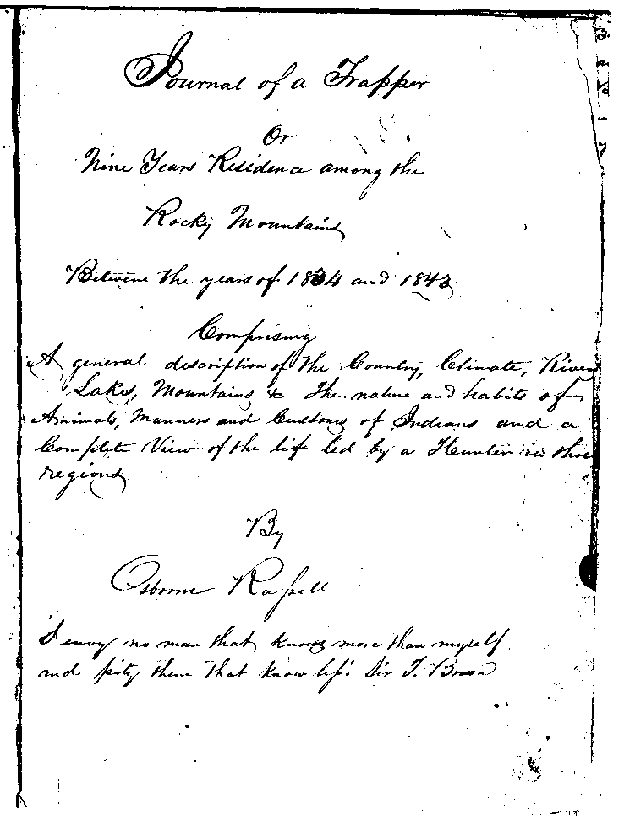 Journal of a Trapper
Or
Nine Years Residence among the
Rocky Mountains
Between the years of 1834 and 1843
Comprising
A general description of the Country, Climate, Rivers
Lakes, Mountains &c The nature and habits of
Animals, Manners and Customs of Indians and a
Complete View of the life led by a Hunter in those
regions
By
Osborne Russell
I envy no man that knows more than myself
and pity them that know less Sir T. Brown